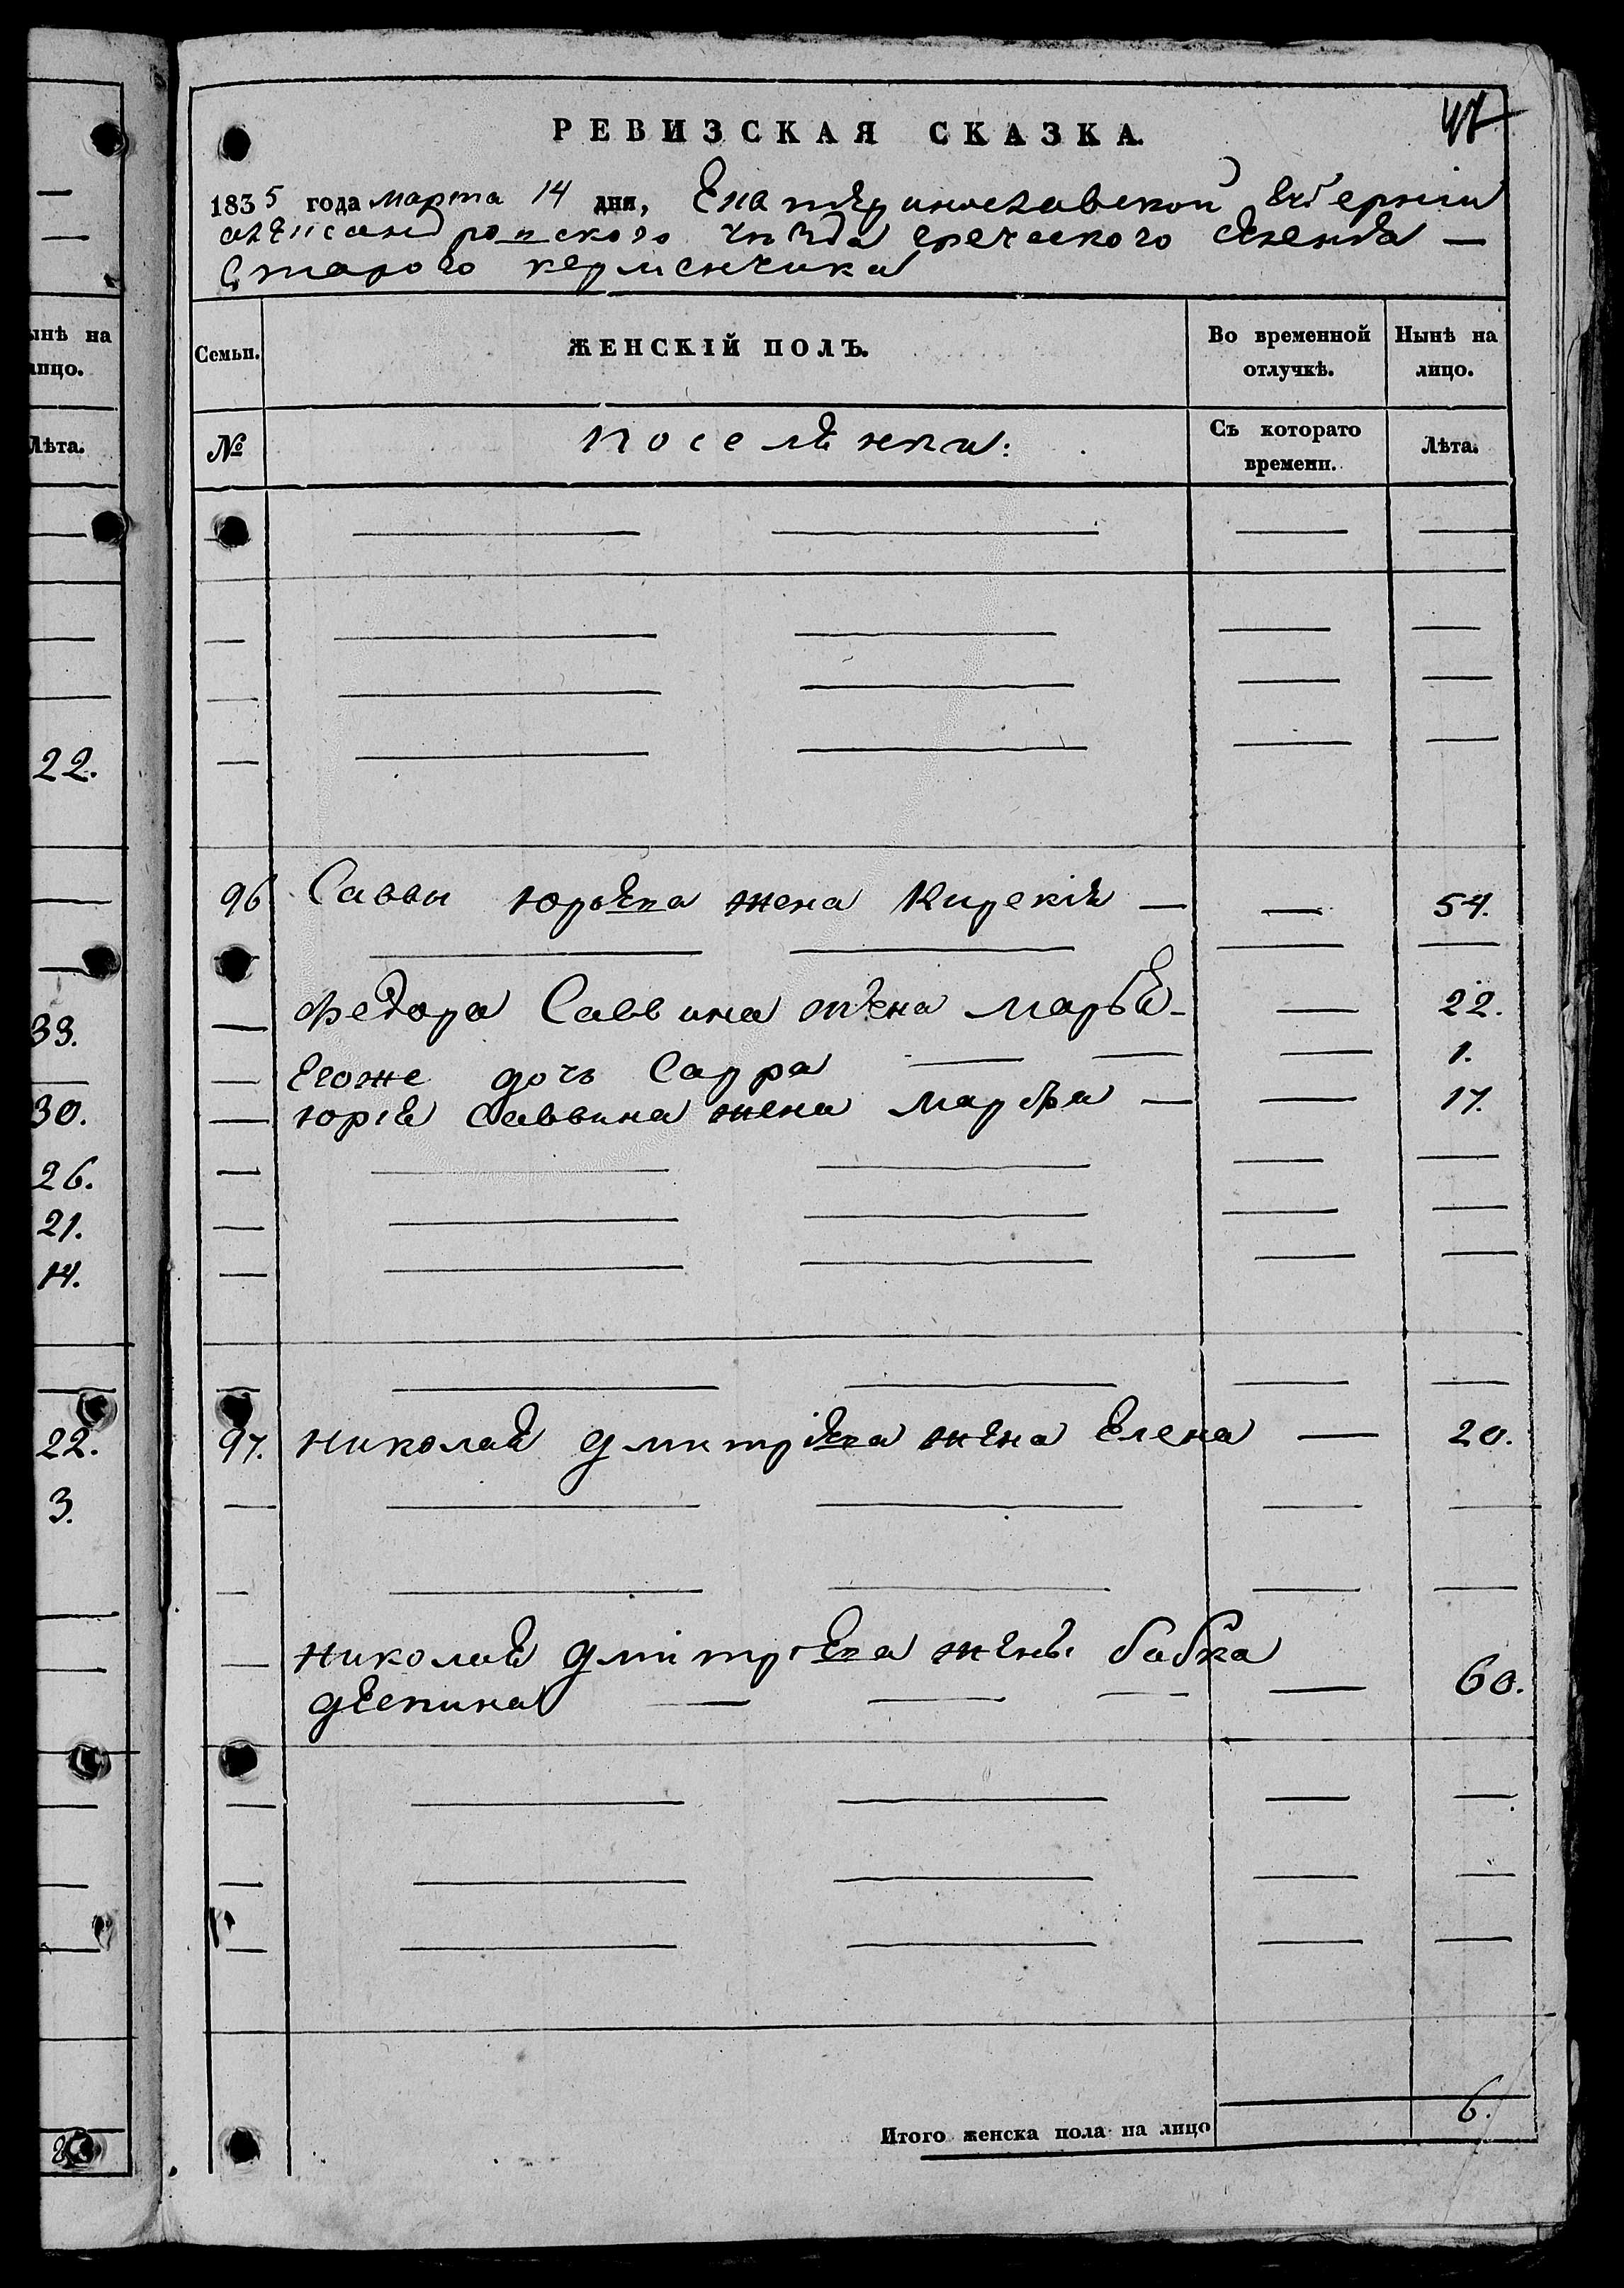 ынѣ на
лицо.
Лѣта.
22.
33.
30.
26.
21.
14.
22.
3.
47
РЕВИЗСКАЯ СКАЗКА.
1835 года марта 14 дня, Екатеринославской Губернiи
александровскаго уѣзда греческаго селенiя —
Стараго керменчика
Семьи. ЖЕНСКIЙ ПОЛЪ. Во временной отлучкѣ. Нынѣ на лицо.
№ поселѣнки: Съ котораго времени. Лѣта.
96 Саввы юрьева жена Кирекiя — — 54.
Федора Саввина жена марья — — 22.
Егоже дочь Сарра — — — 1.
юрiя Саввина жена марфа — — 17.
97. николая дмитрiева жена Елена — 20.
николая дмiтрiева жены бабка
деспина — — — — 60.
Итого женска пола на лицо 6.